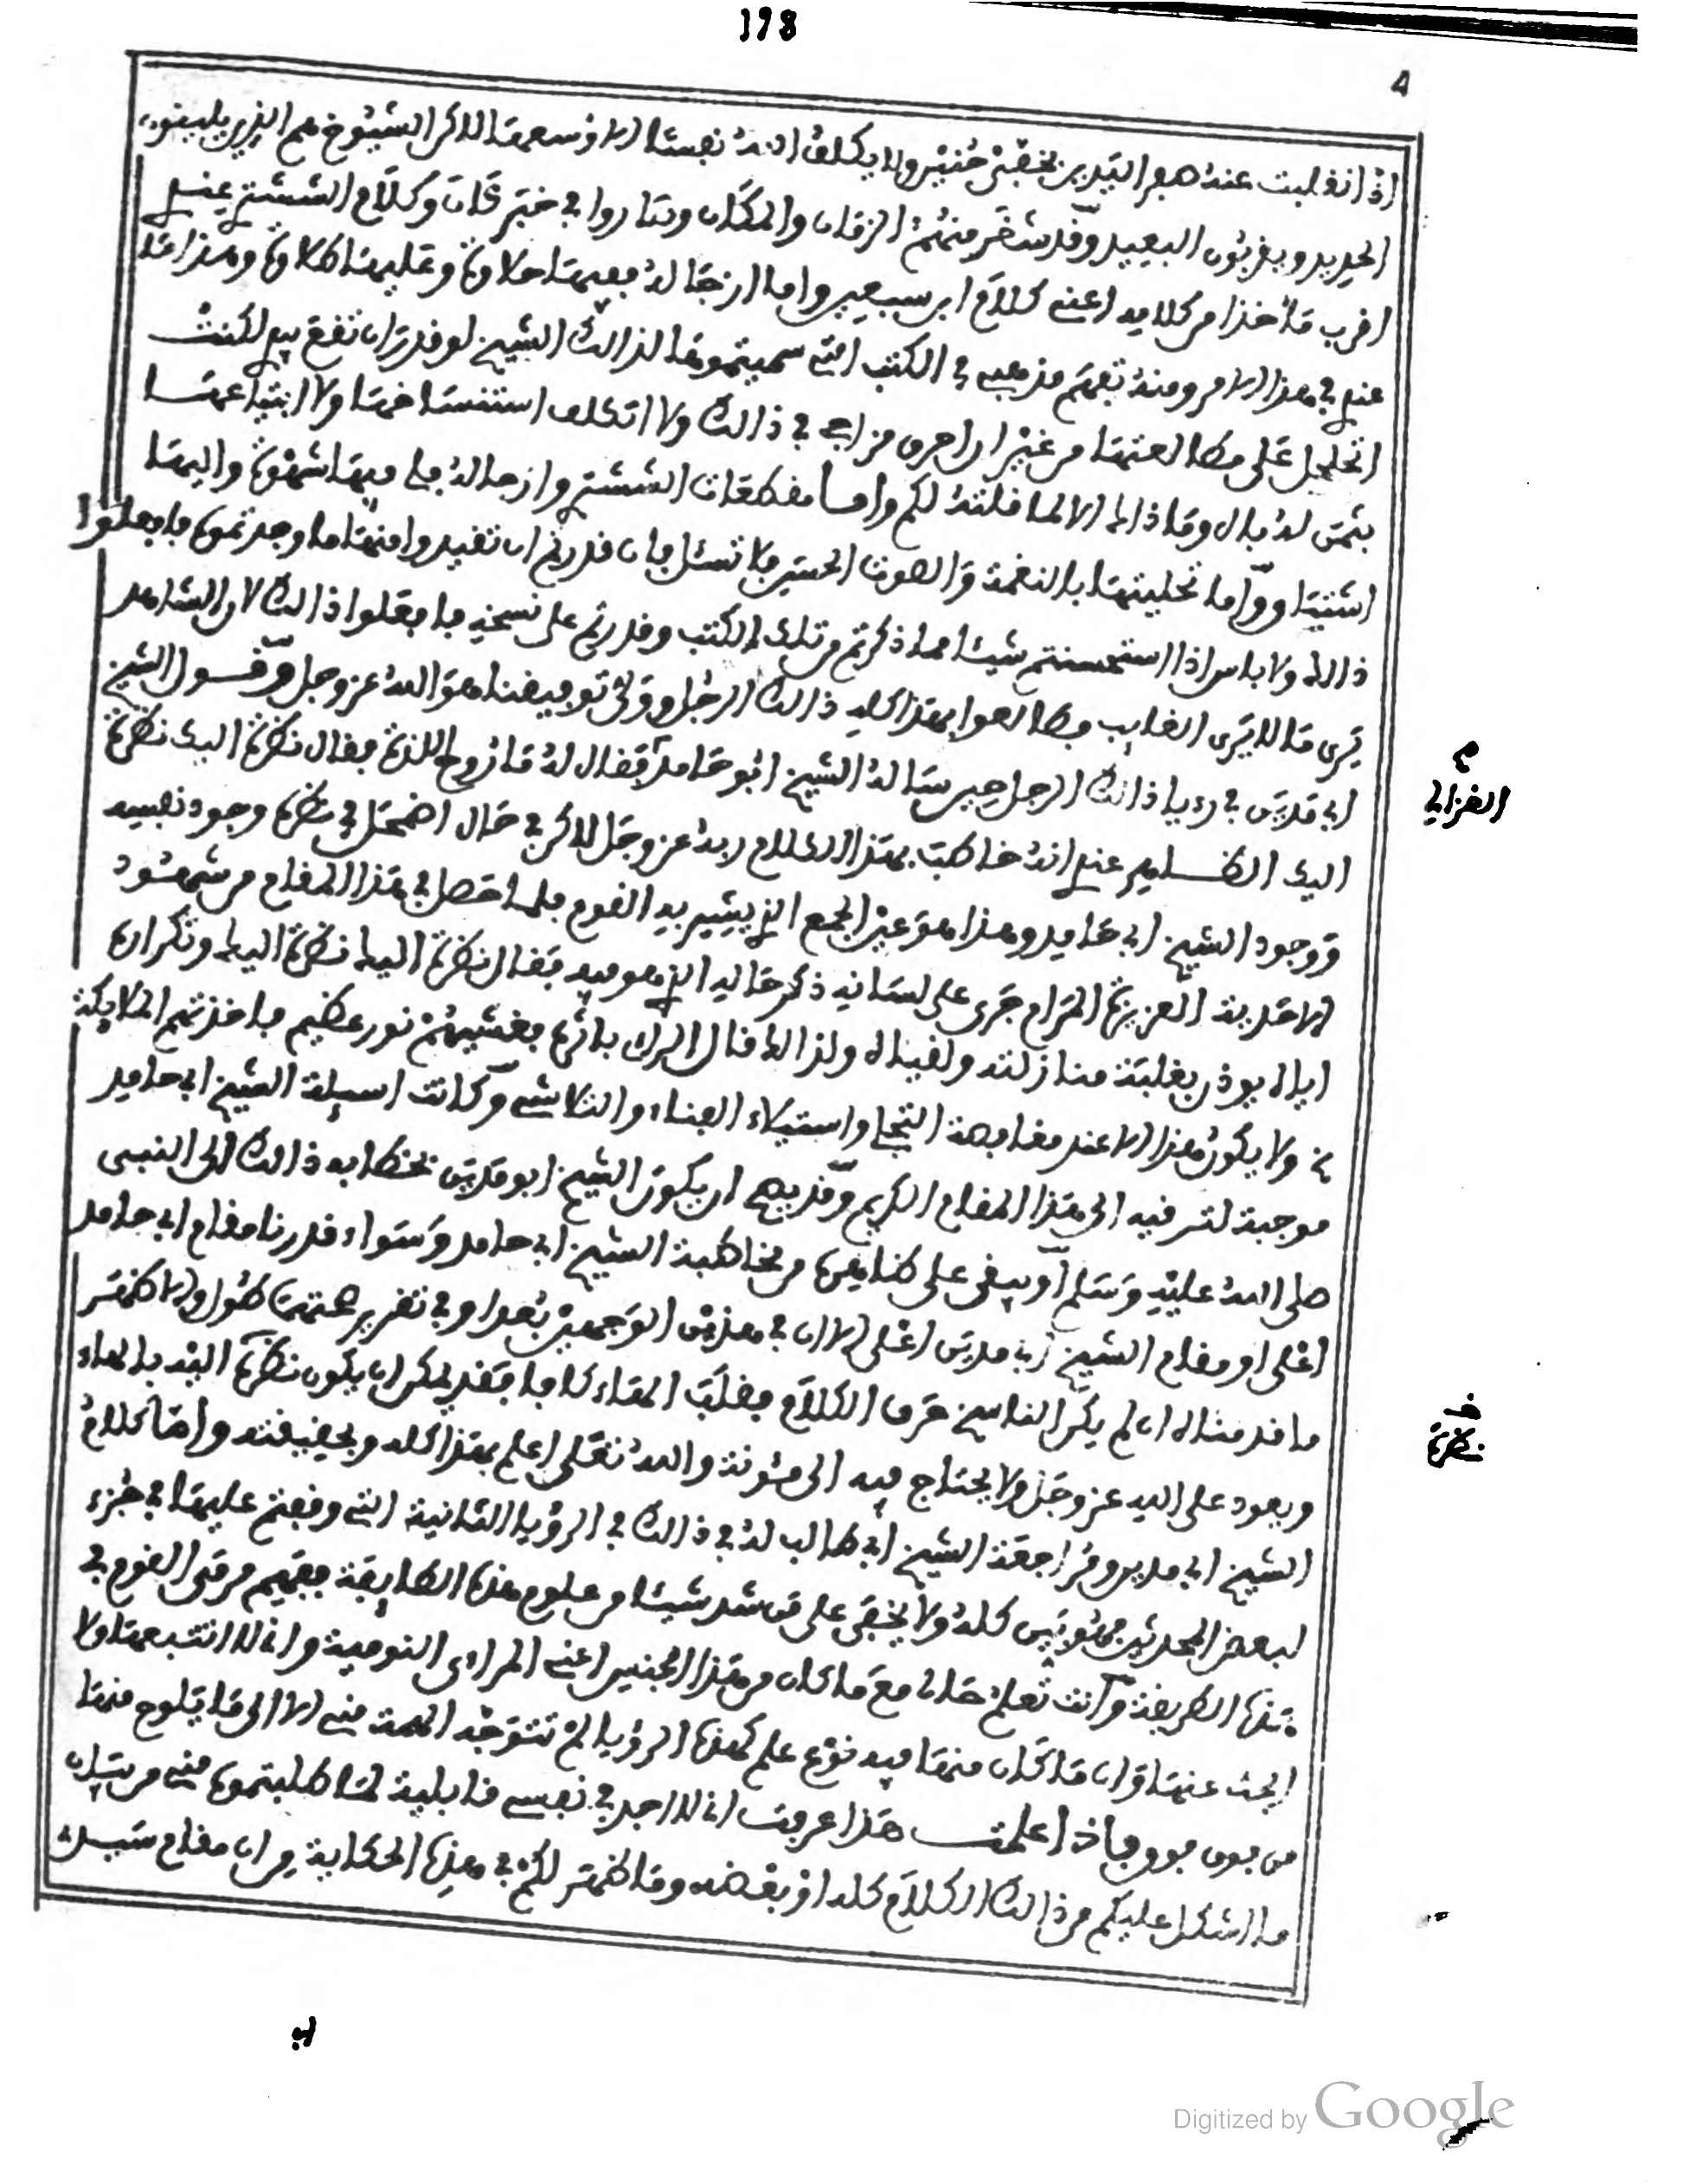 198
4
اذا انقلبت عنه صفر اليدين بخفي حنين ولا يكلف الله نفسا الا وسعها لاكن الشيوخ هم الذين يلينون
الحديد ويقربون البعيد وقد شغر منهم الزمان والمكان وصاروا في خبر كان وكلام الششتري عندي
اقرب مأخذا من كلامه اعني كلام ابن سبعين واما ازجاله ففيها حلاوة وعليها طلاوة وهذا ما
عندي في هذا الامر ومنه تفهم مذهبي في الكتب التي سميتموها لذالك الشيخ لو قدر ان تقع بيدي لكنت
اتحليل على مطالعتها من غير ان احرق مزاجي في ذالك ولا اتكلف استنساخها ولا ابتياعها
بثمن له بال وما ذاك الا لما قلته لكم واما مقطعات الششتري وازجاله فلي فيها شهوة واليها
اشتياق واما تحليتها بالنغمة والصوت الحسن فلا تسئل فان قدرتم ان تقيدوا منها ما وجدتموه فافعلوا
ذالك ولا باس اذا استحسنتم شيئا مما ذكرتم من تلك الكتب وقدرتم على نسخه فافعلوا ذالك لان الشاهد
يرى ما لا يرى الغايب وطالعوا بهذا كله ذالك الرجل وولي توفيقنا هو الله عز وجل وقول الشيخ
ابي مدين في رءيا ذالك الرجل حين ساله الشيخ ابو حامد فقال له ما روح الذة فقال نظرة اليك نظرة
م
الغزالي
اليك الظاهر عندي انه خاطب بهذا الكلام ربه عز وجل لاكن في حال اضمحل في نظره وجود نفسه
ووجود الشيخ ابي حامد وهذا هو عين الجمع الذي يشير به القوم فلما حصل في هذا المقام من شهود
الاحدية العزيزة المرام جرى على لسانه ذكر حاله الذي هو فيه فقال نظرة اليك نظرة اليك وتكراره
اياه يوذن بغلبة منازلته ولقياه ولذالك قال الراى باثره فغشيهم نور عظيم فاخذتهم الملايكة
ولا يكون هذا الا عند مغافصة التجلي واستيلاء الفناء والتلاشي وكانت اسيلة الشيخ ابي حامد
موجبة لترقيه الى هذا المقام الكريم وقد يصح ان يكون الشيخ ابو مدين بخطابه ذالك الى النبي
صلى الله عليه وسلم او يبقى على ظاهره من مخاطبة الشيخ ابي حامد وسواء قدرنا مقام ابي حامد
اعلى او مقام الشيخ ابي مدين اعلى الا ان في هذين الوجهين بعدا وفي تقرير صحتهما طول والاظهر
ما قدمناه ان لم يكن الناسخ حرف الكلام فقلب الهاء كافا فقد يمكن ان يكون نظرة اليه بالهاء
ف
نظرة
ويعود على الله عز وجل ولا يحتاج فيه الى مئونة والله تعلى اعلم بهذا كله وبحقيقته واما كلام
الشيخ ابي مدين ومراجعة الشيخ ابي طالب له في ذالك في الرؤيا الثانية التي وقعتم عليها في جزء
لبعض المحدثين كله ولا يخفى على من شد شيئا من علوم هذه الطايفة ففهم مرقى القوم في
هذه الطريقة وانت تعلم حالي مع ما كان من هذا الجنس اعني المراءي النومية واني لا اتتبعها ولا
ابحث عنها وان ما كان منها فيه نوع علم كهذه الرؤيا لم تتوجه الهمة مني الا الى ما يلوح منها
من فوق فوق فاذا علمت هذا عرفت اني لا اجد في نفسي قابلية لما طلبتموه مني من بيان
ما اشكل عليكم من ذالك الكلام كله او بعضه وما ظهر لكم في هذه الحكاية من ان مقام سيدي
ابي
Digitized by Google